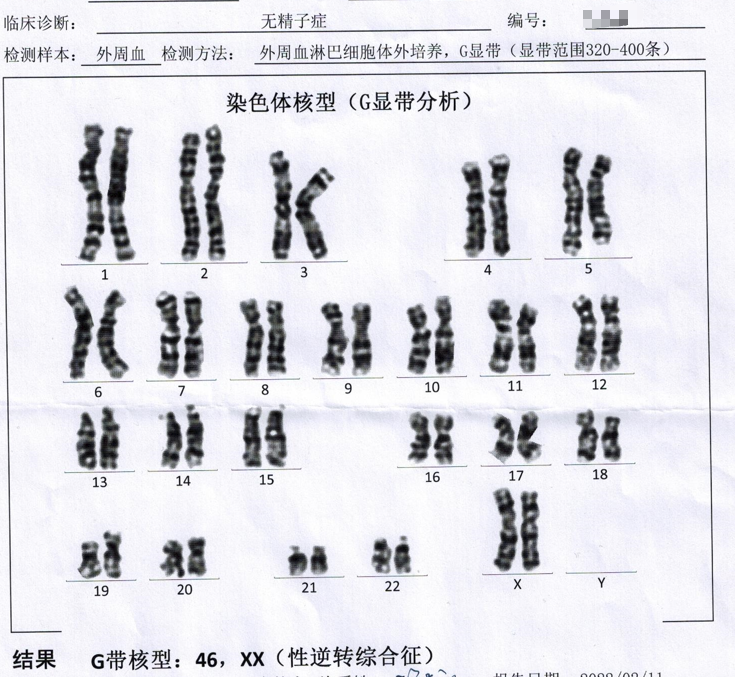 临床诊断： 无精子症 编号：
检测样本： 外周血 检测方法： 外周血淋巴细胞体外培养，G显带（显带范围320-400条）
染色体核型（G显带分析）
1 2 3 4 5
6 7 8 9 10 11 12
13 14 15 16 17 18
19 20 21 22 X Y
结果 G带核型：46，XX（性逆转综合征）